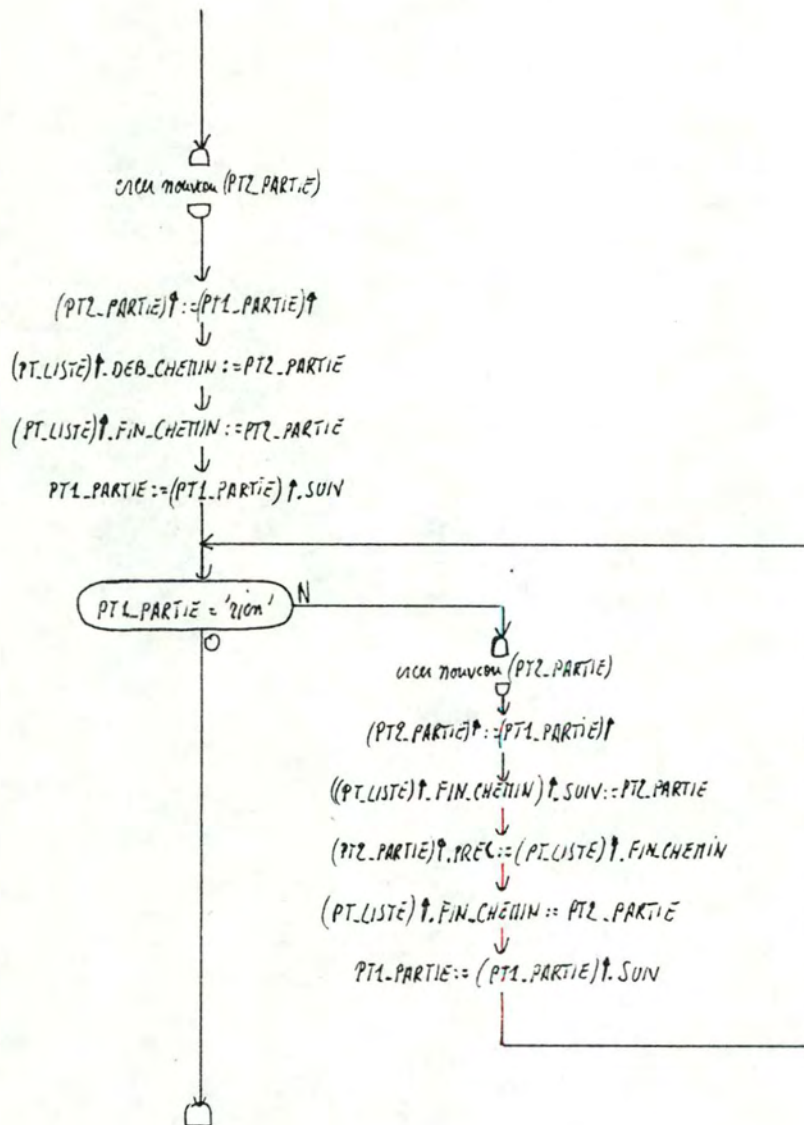 créer nouveau (PT2_PARTIE)
(PT2_PARTIE)↑:=(PT1_PARTIE)↑
(PT_LISTE)↑.DEB_CHEMIN:=PT2_PARTIE
(PT_LISTE)↑.FIN_CHEMIN:=PT2_PARTIE
PT1_PARTIE:=(PT1_PARTIE)↑.SUIV
PT1_PARTIE='rien'
N
O
créer nouveau (PT2_PARTIE)
(PT2_PARTIE)↑:=(PT1_PARTIE)↑
((PT_LISTE)↑.FIN_CHEMIN)↑.SUIV:=PT2_PARTIE
(PT2_PARTIE)↑.PREC:=(PT_LISTE)↑.FIN_CHEMIN
(PT_LISTE)↑.FIN_CHEMIN:=PT2_PARTIE
PT1_PARTIE:=(PT1_PARTIE)↑.SUIV